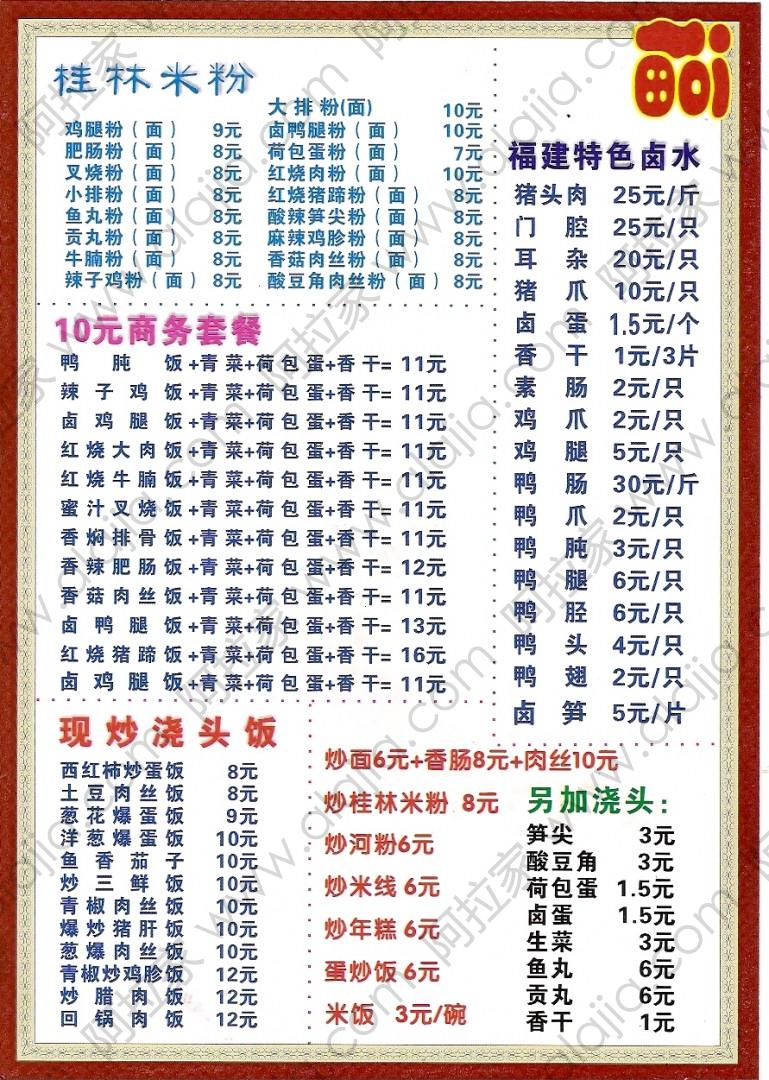 桂林米粉
大排粉(面) 10元
鸡腿粉（面） 9元 卤鸭腿粉（面） 10元
肥肠粉（面） 8元 荷包蛋粉（面） 7元
叉烧粉（面） 8元 红烧肉粉（面） 10元
小排粉（面） 8元 红烧猪蹄粉（面） 8元
鱼丸粉（面） 8元 酸辣笋尖粉（面） 8元
贡丸粉（面） 8元 麻辣鸡胗粉（面） 8元
牛腩粉（面） 8元 香菇肉丝粉（面） 8元
辣子鸡粉（面） 8元 酸豆角肉丝粉（面） 8元
10元商务套餐
鸭肫饭+青菜+荷包蛋+香干=11元
辣子鸡饭+青菜+荷包蛋+香干=11元
卤鸡腿饭+青菜+荷包蛋+香干=11元
红烧大肉饭+青菜+荷包蛋+香干=11元
红烧牛腩饭+青菜+荷包蛋+香干=11元
蜜汁叉烧饭+青菜+荷包蛋+香干=11元
香焖排骨饭+青菜+荷包蛋+香干=11元
香辣肥肠饭+青菜+荷包蛋+香干=12元
香菇肉丝饭+青菜+荷包蛋+香干=11元
卤鸭腿饭+青菜+荷包蛋+香干=13元
红烧猪蹄饭+青菜+荷包蛋+香干=16元
卤鸡腿饭+青菜+荷包蛋+香干=11元
福建特色卤水
猪头肉 25元/斤
门腔 25元/只
耳杂 20元/只
猪爪 10元/只
卤蛋 1.5元/个
香干 1元/3片
素肠 2元/只
鸡爪 2元/只
鸡腿 5元/只
鸭肠 30元/斤
鸭爪 2元/只
鸭肫 3元/只
鸭腿 6元/只
鸭胫 6元/只
鸭头 4元/只
鸭翅 2元/只
卤笋 5元/片
现炒浇头饭
西红柿炒蛋饭 8元
土豆肉丝饭 8元
葱花爆蛋饭 9元
洋葱爆蛋饭 10元
鱼香茄子 10元
炒三鲜饭 10元
青椒肉丝饭 10元
爆炒猪肝饭 10元
葱爆肉丝饭 10元
青椒炒鸡胗饭 12元
炒腊肉饭 12元
回锅肉饭 12元
炒面6元+香肠8元+肉丝10元
炒桂林米粉 8元
炒河粉6元
炒米线 6元
炒年糕 6元
蛋炒饭 6元
米饭 3元/碗
另加浇头：
笋尖 3元
酸豆角 3元
荷包蛋 1.5元
卤蛋 1.5元
生菜 3元
鱼丸 6元
贡丸 6元
香干 1元
阿拉家 www.alajia.com